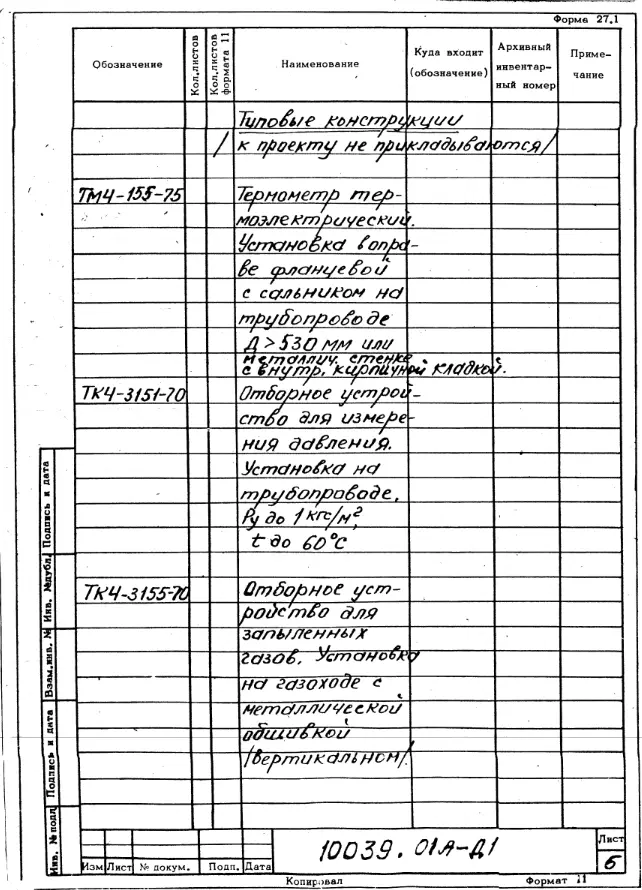 Форма 27.1
Обозначение
Кол.листов
Кол.листов формата 11
Наименование
Куда входит (обозначение)
Архивный инвентарный номер
Примечание
Типовые конструкции
/ к проекту не прикладываются/
ТМЧ-155-75
Термометр тер-
моэлектрический.
Установка в опра-
ве фланцевой
с сальником на
трубопроводе
Д > 530 мм или
металлич. стенке
с внутр. кирпичной кладкой.
ТКЧ-3151-70
Отборное устрой-
ство для измере-
ния давления.
Установка на
трубопроводе,
Ру до 1 кгс/м²,
t до 60°С
ТКЧ-3155-70
Отборное уст-
ройство для
запыленных
газов. Установка
на газоходе с
металлической
обшивкой
/вертикальном/.
Инв. № подл
Подпись и дата
Взам.инв. №
Инв. №дубл.
Подпись и дата
Изм
Лист
№ докум.
Подп.
Дата
10039.01А-Д1
Лист
6
Копировал
Формат 11